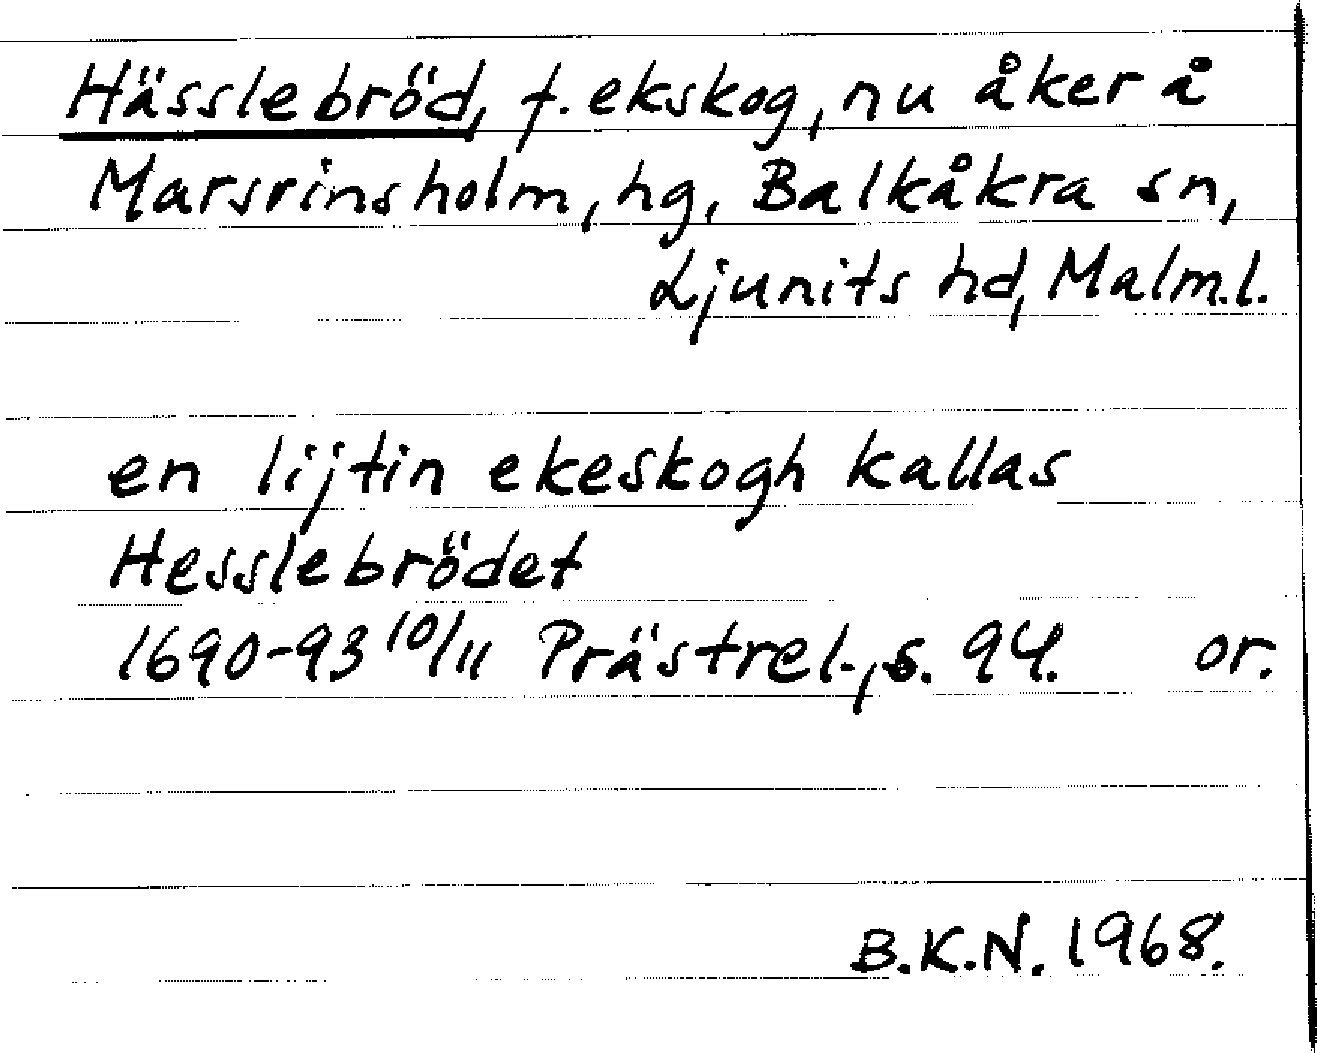 Hässlebröd, f. ekskog, nu åker å
Marsvinsholm, hg, Balkåkra sn,
Ljunits hd, Malm.l.
en lijtin ekeskogh kallas
Hesslebrödet
1690-93 10/11 Prästrel., s. 94. or.
B.K.N. 1968.